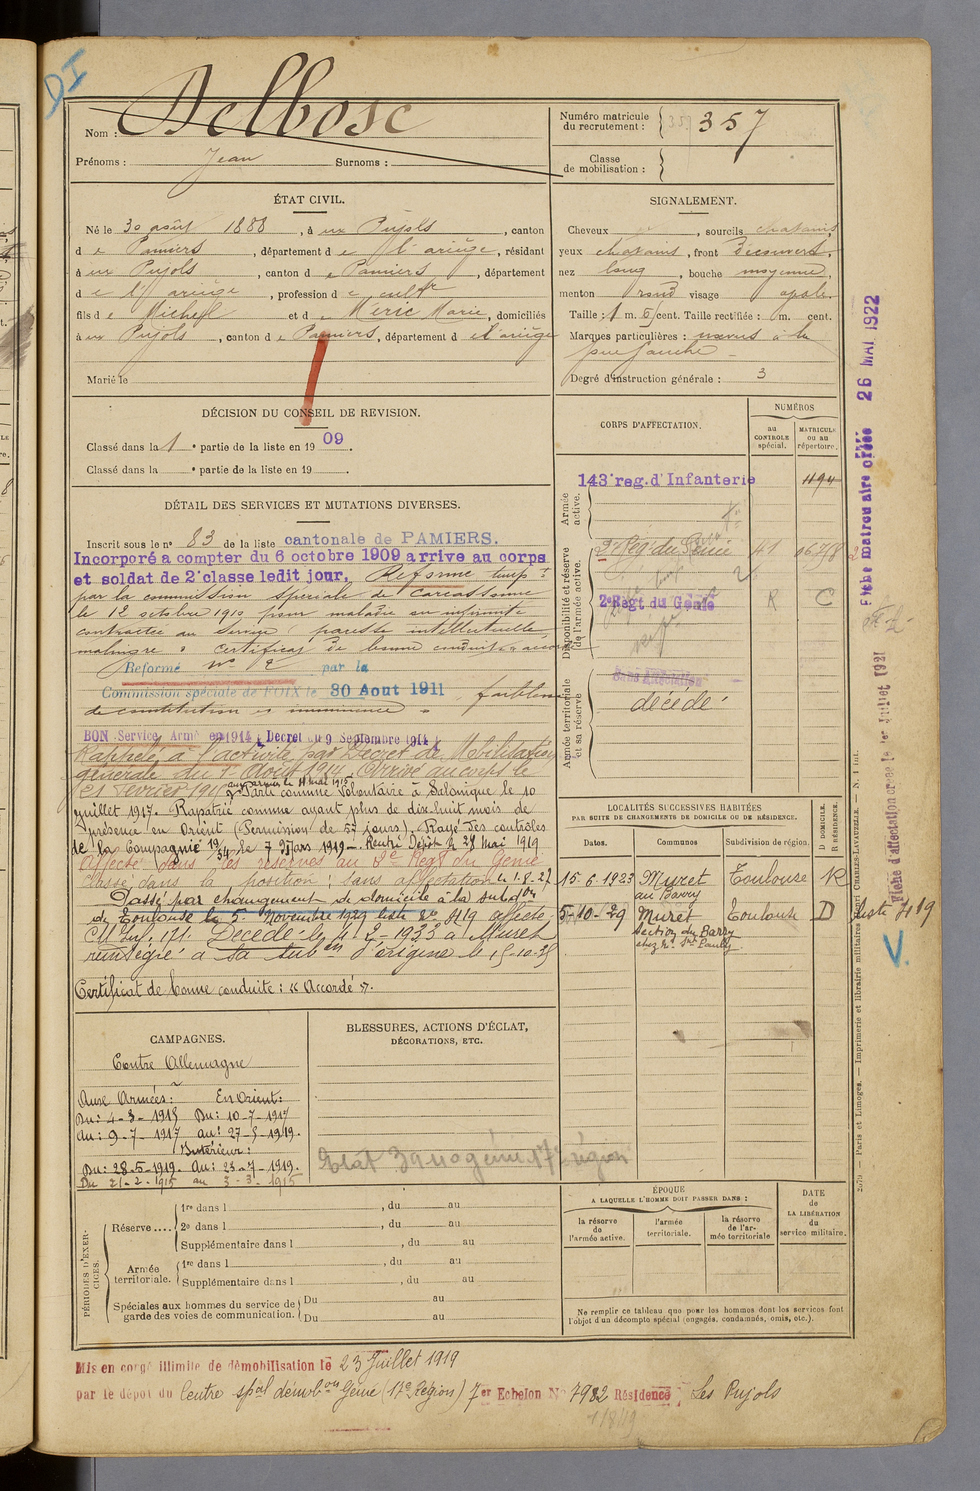 DI
Nom : Delbosc
Prénoms : Jean Surnoms :
Numéro matricule du recrutement : 357
Classe de mobilisation :
ÉTAT CIVIL.
Né le 30 août 1888, à ux Pujols, canton
d e Pamiers, département d e l'ariège, résidant
à ux Pujols, canton d e Pamiers, département
d e l'ariège, profession d e cultr
fils d e Michel et d e Méric Marie, domiciliés
à ux Pujols, canton d e Pamiers, département d e l'ariège
Marié le
SIGNALEMENT.
Cheveux , sourcils chatains,
yeux chatains, front Découvert,
nez long, bouche moyenne,
menton rond visage ovale.
Taille : 1 m. cent. Taille rectifiée : m. cent.
Marques particulières : nœvus à la
joue gauche
Degré d'instruction générale : 3
DÉCISION DU CONSEIL DE REVISION.
Classé dans la 1 e partie de la liste en 1909.
Classé dans la e partie de la liste en 19 .
DÉTAIL DES SERVICES ET MUTATIONS DIVERSES.
Inscrit sous le n° 83 de la liste cantonale de PAMIERS.
Incorporé a compter du 6 octobre 1909 arrive au corps
et soldat de 2e classe ledit jour, Réformé temp.t
par la commission spéciale de Carcassonne
le 12 octobre 1910 pour maladie ou infirmité
contractée au service : paresse intellectuelle,
malingre. certificat de bonne conduite accordé
Réformé n° 2 par la
Commission spéciale de FOIX le 30 Aout 1911 faiblesse
de constitution et imminence
BON Service Armé en 1914, Decret du 9 Septembre 1914
Rappelé à l'activité par Décret de Mobilisation
générale du 1er Août 1914. Arrivé au corps le
21 Février 1915 aux armées le 4 mai 1915
Parti comme volontaire à Salonique le 10
juillet 1917. Rapatrié comme ayant plus de dix-huit mois de
présence en Orient (Permission de 57 jours). Rayé des contrôles
de la Compagnie 19/54 le 7 Mars 1919. Rentré Dépôt le 28 Mai 1919
Affecté dans les réserves au 2e Regt du Génie
Classé dans la position : sans affectation le 1.8.27
Passé par changement de domicile à la subdon
de Toulouse le 5 Novembre 1929 liste 8e 419 affecté
CM Inf. 171. Décédé le 1-2-1933 à Muret
renseigné à la subon d'origine le 15-10-35
Certificat de bonne conduite : "Accordé".
CORPS D'AFFECTATION.
NUMÉROS
au CONTROLE spécial.
MATRICULE ou au répertoire.
Armée active.
143e reg. d'Infanterie 1194
Disponibilité et réserve de l'armée active.
2e Reg. du Génie 41 06778
2e Regt du Génie R C
Armée territoriale et sa réserve
Sans Affectation
décédé
LOCALITÉS SUCCESSIVES HABITÉES
PAR SUITE DE CHANGEMENTS DE DOMICILE OU DE RÉSIDENCE.
Dates. Communes Subdivision de région. D DOMICILE. R RÉSIDENCE.
15.6.1923 Muret Toulouse R
au Barry
5-10-29 Muret Toulouse D
section du Barry
CAMPAGNES.
Contre Allemagne
Aux Armées : En Orient :
Du : 4-3-1915 Du : 10-7-1917
au : 9-7-1917 au : 27-5-1919.
Intérieur :
Du : 28-5-1919. Au : 23-7-1919.
Du 21-2-1915 au 3-3-1915
BLESSURES, ACTIONS D'ÉCLAT,
DÉCORATIONS, ETC.
PÉRIODES D'EXERCICES.
Réserve ....
1re dans l , du au
2e dans l , du au
Supplémentaire dans l , du au
Armée territoriale.
1re dans l , du au
Supplémentaire dans l , du au
Spéciales aux hommes du service de garde des voies de communication.
Du au
Du au
ÉPOQUE
A LAQUELLE L'HOMME DOIT PASSER DANS :
la réserve de l'armée active.
l'armée territoriale.
la réserve de l'armée territoriale
DATE de LA LIBÉRATION du service militaire.
Ne remplir ce tableau que pour les hommes dont les services font
l'objet d'un décompte spécial (engagés, condamnés, omis, etc.).
Mis en congé illimité de démobilisation le 23 Juillet 1919
par le dépôt du Centre spal démobon Génie (17e Région) 7er Echelon N° 7982 Résidence Les Pujols
Fiche matriculaire créée 26 MAI 1922
Fiche d'affectation créée le 1er Juillet 1921
liste 419
V.
2579. — Paris et Limoges. — Imprimerie et librairie militaires CHARLES-LAVAUZELLE. — N. 1 int.